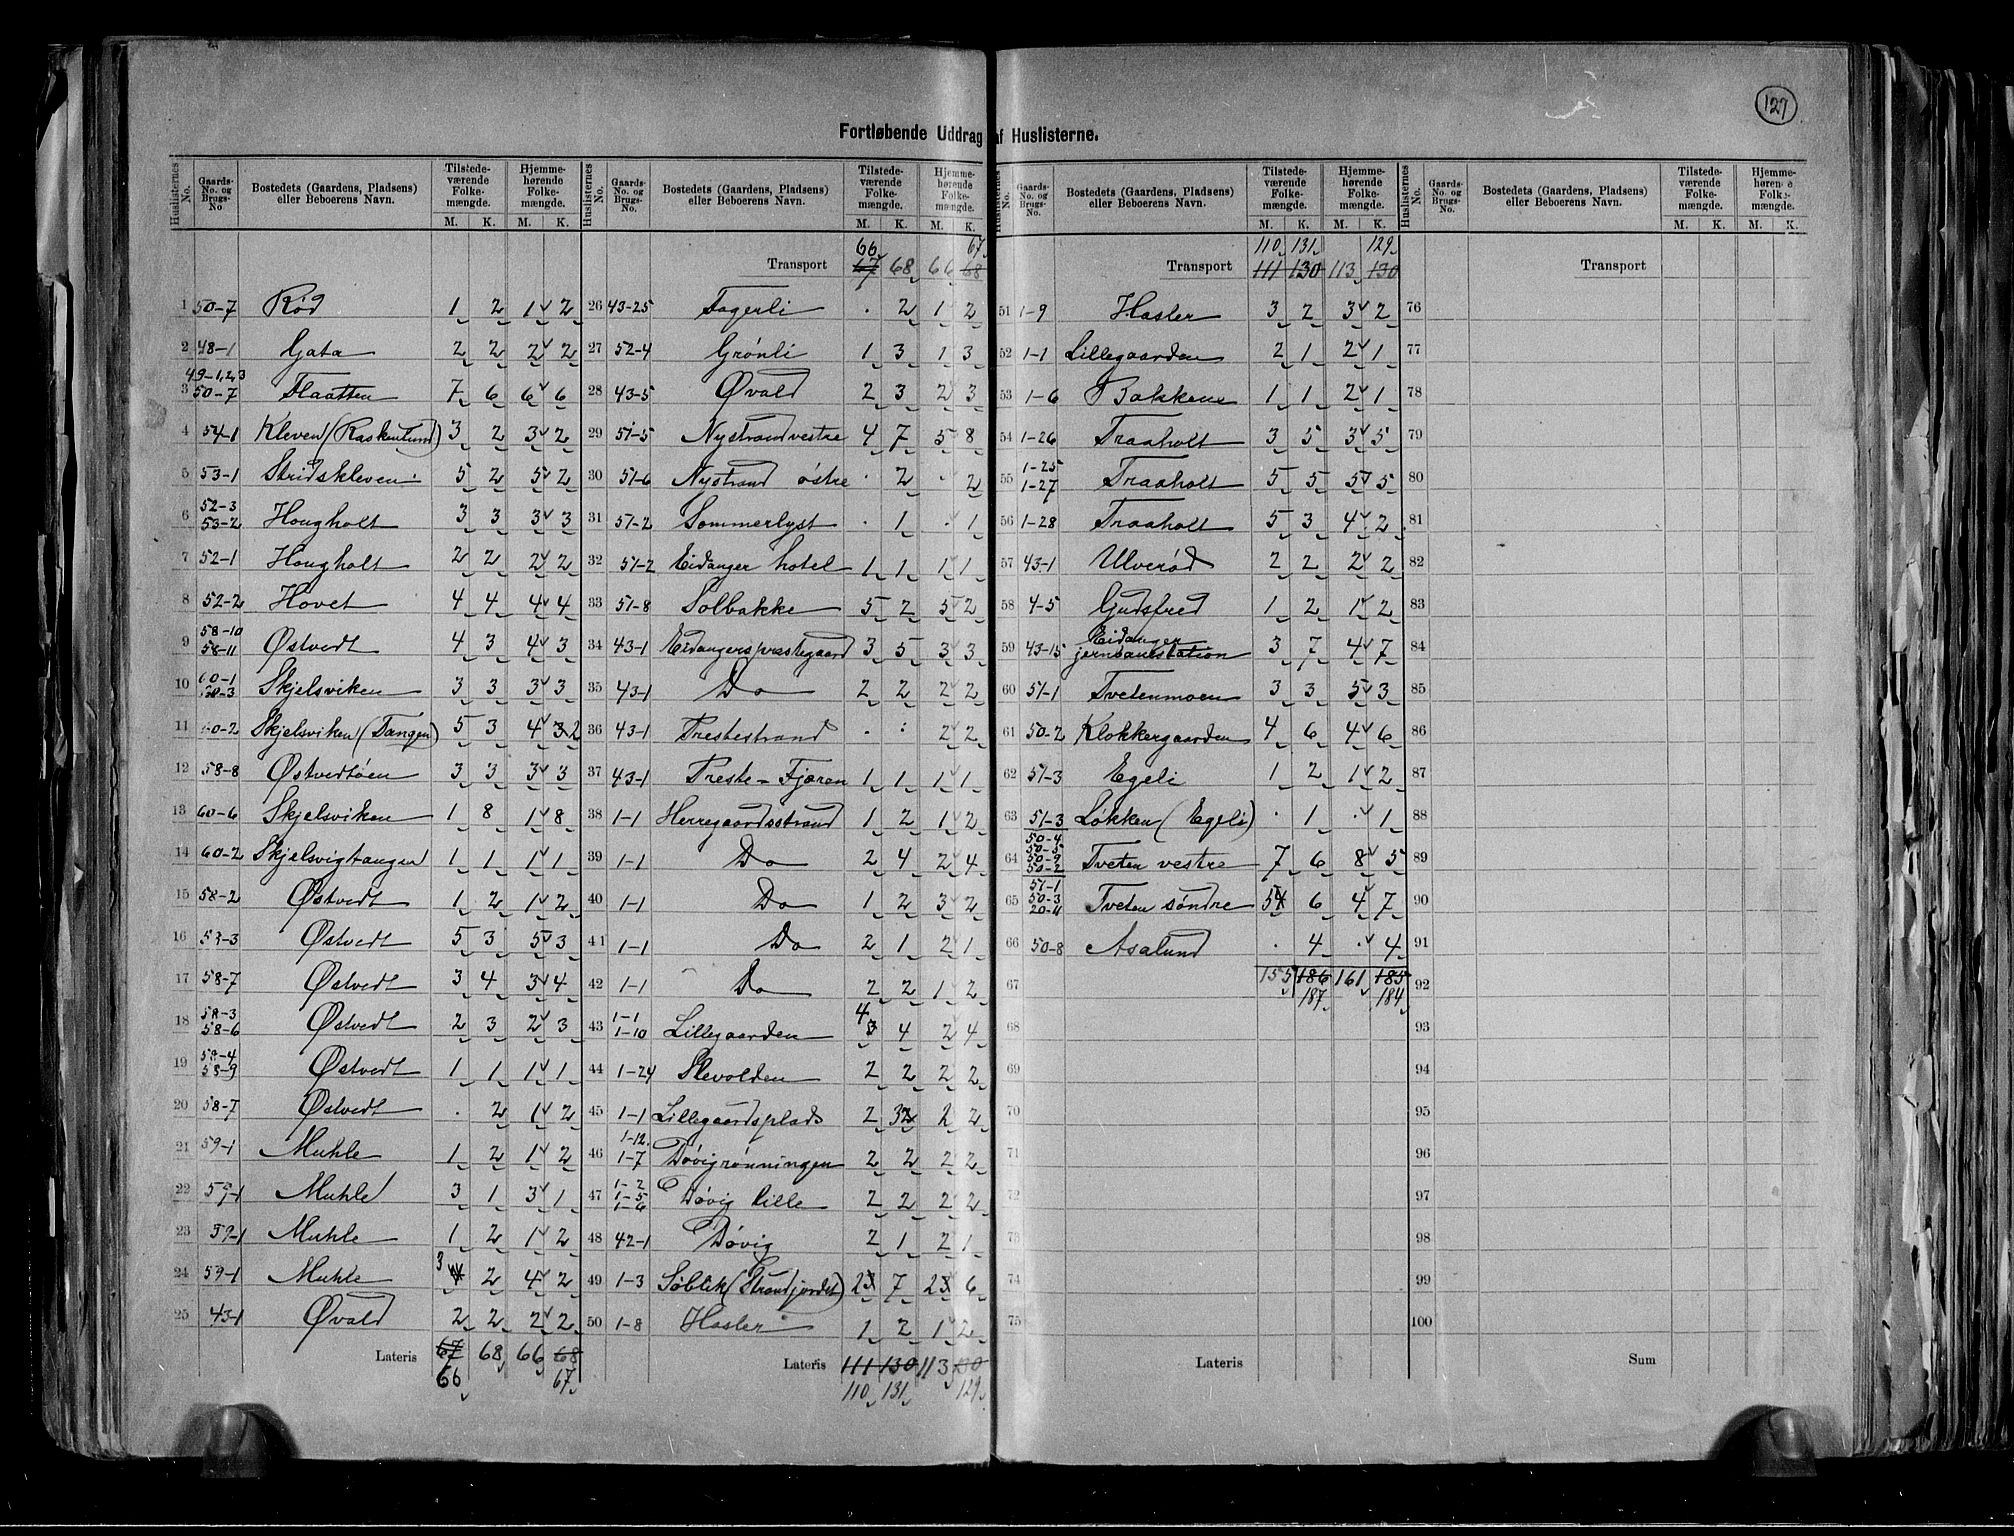 127
Fortløbende Uddrag af Huslisterne.
Huslisternes No. | Gaards-No. og Brugs-No. | Bostedets (Gaardens, Pladsens) eller Beboerens Navn. | Tilstedeværende Folkemængde. M. K. | Hjemmehørende Folkemængde. M. K.
1 50-7 Rød 1 2 1 2
2 48-1 Gata 2 2 2 2
3 49-1,2,3 50-7 Flaatten 7 6 6 6
4 54-1 Kleven (Raskenlund) 3 2 3 2
5 53-1 Stridskleven 5 2 5 2
6 52-3 53-2 Hougholt 3 3 3 3
7 52-1 Hougholt 2 2 2 2
8 52-2 Hovet 4 4 4 4
9 58-10 58-11 Østvedt 4 3 4 3
10 60-1 60-3 Skjelsviken 3 3 3 3
11 60-2 Skjelsviken (Tangen) 5 3 4 3 2
12 58-8 Østvedtøen 3 3 3 3
13 60-6 Skjelsviken 1 8 1 8
14 60-2 Skjelsvigtangen 1 1 1 1
15 58-2 Østvedt 1 2 1 2
16 58-3 Østvedt 5 3 5 3
17 58-7 Østvedt 3 4 3 4
18 58-3 58-6 Østvedt 2 3 2 3
19 59-4 58-9 Østvedt 1 1 1 1
20 58-7 Østvedt . 2 1 2
21 59-1 Muhle 1 2 1 2
22 59-1 Muhle 3 1 3 1
23 59-1 Muhle 1 2 1 2
24 59-1 Muhle 3 2 4 2
25 43-1 Øvald 2 2 2 2
Lateris 67 68 66 68
66 67
Huslisternes No. | Gaards-No. og Brugs-No. | Bostedets (Gaardens, Pladsens) eller Beboerens Navn. | Tilstedeværende Folkemængde. M. K. | Hjemmehørende Folkemængde. M. K.
66 67
Transport 67 68 66 68
26 43-25 Fagerli . 2 1 2
27 52-4 Grønli 1 3 1 3
28 43-5 Øvald 2 3 2 3
29 51-5 Nystrand vestre 4 7 5 8
30 51-6 Nystrand østre . 2 . 2
31 51-2 Sommerlyst . 1 . 1
32 51-2 Eidanger hotel 1 1 1 1
33 51-8 Solbakke 5 2 5 2
34 43-1 Eidangersprestegaard 3 5 3 3
35 43-1 Do 2 2 2 2
36 43-1 Prestestrand . . 2 2
37 43-1 Preste-Fjæren 1 1 1 1
38 1-1 Herregaardsstrand 1 2 1 2
39 1-1 Do 2 4 2 4
40 1-1 Do 1 2 3 2
41 1-1 Do 2 1 2 1
42 1-1 Do 2 2 1 2
43 1-1 1-10 Lillegaarden 4 3 4 2 4
44 1-24 Slevolden 2 2 2 2
45 1-1 Lillegaardsplads 2 3 2 2 2
46 1-12. 1-7 Døvigrønningen 2 2 2 2
47 1-2 1-5 1-6 Døvig lille 2 2 2 2
48 42-1 Døvig 2 1 2 1
49 1-3 Søblik (Strandjordet) 2 3 7 2 3 6
50 1-8 Hasler 1 2 1 2
Lateris 111 130 113 130
110 131 129
Huslisternes No. | Gaards-No. og Brugs-No. | Bostedets (Gaardens, Pladsens) eller Beboerens Navn. | Tilstedeværende Folkemængde. M. K. | Hjemmehørende Folkemængde. M. K.
110 131 129
Transport 111 130 113 130
51 1-9 Hasler 3 2 3 2
52 1-1 Lillegaarden 2 1 2 1
53 1-6 Bakkene 1 1 2 1
54 1-26 Traaholt 3 5 3 5
55 1-25 1-27 Traaholt 5 5 5 5
56 1-28 Traaholt 5 3 4 2
57 43-1 Ulverød 2 2 2 2
58 4-5 Gudsfred 1 2 1 2
59 43-15 Eidanger jernbanestation 3 7 4 7
60 51-1 Tvetenmoen 3 3 5 3
61 50-2 Klokkergaarden 4 6 4 6
62 51-3 Egeli 1 2 1 2
63 51-3 Løkken (Egeli) . 1 . 1
64 50-4 50-5 50-9 50-2 Tveten vestre 7 6 8 5
65 51-1 50-3 20-4 Tveten søndre 5 4 6 4 7
66 50-8 Asalund . 4 . 4
67 155 186 161 185
187 184
68
69
70
71
72
73
74
75
Lateris
Huslisternes No. | Gaards-No. og Brugs-No. | Bostedets (Gaardens, Pladsens) eller Beboerens Navn. | Tilstedeværende Folkemængde. M. K. | Hjemmehørende Folkemængde. M. K.
Transport
76
77
78
79
80
81
82
83
84
85
86
87
88
89
90
91
92
93
94
95
96
97
98
99
100
Sum